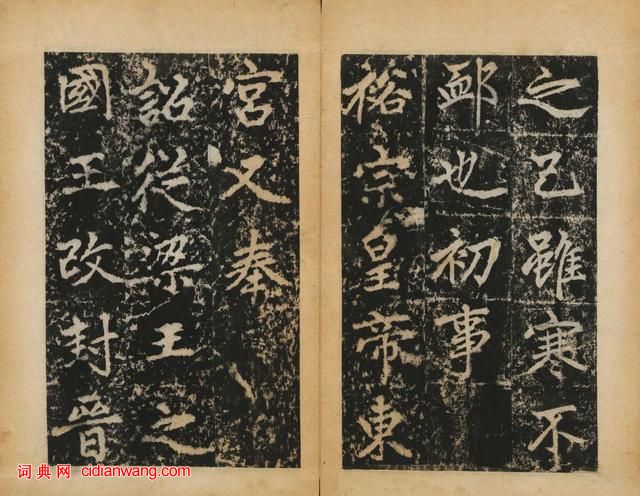 之己雖寒不
卹也初事
裕宗皇帝東
宮又奉
詔從梁王之
國王改封晉
词典网 cidianwang.com